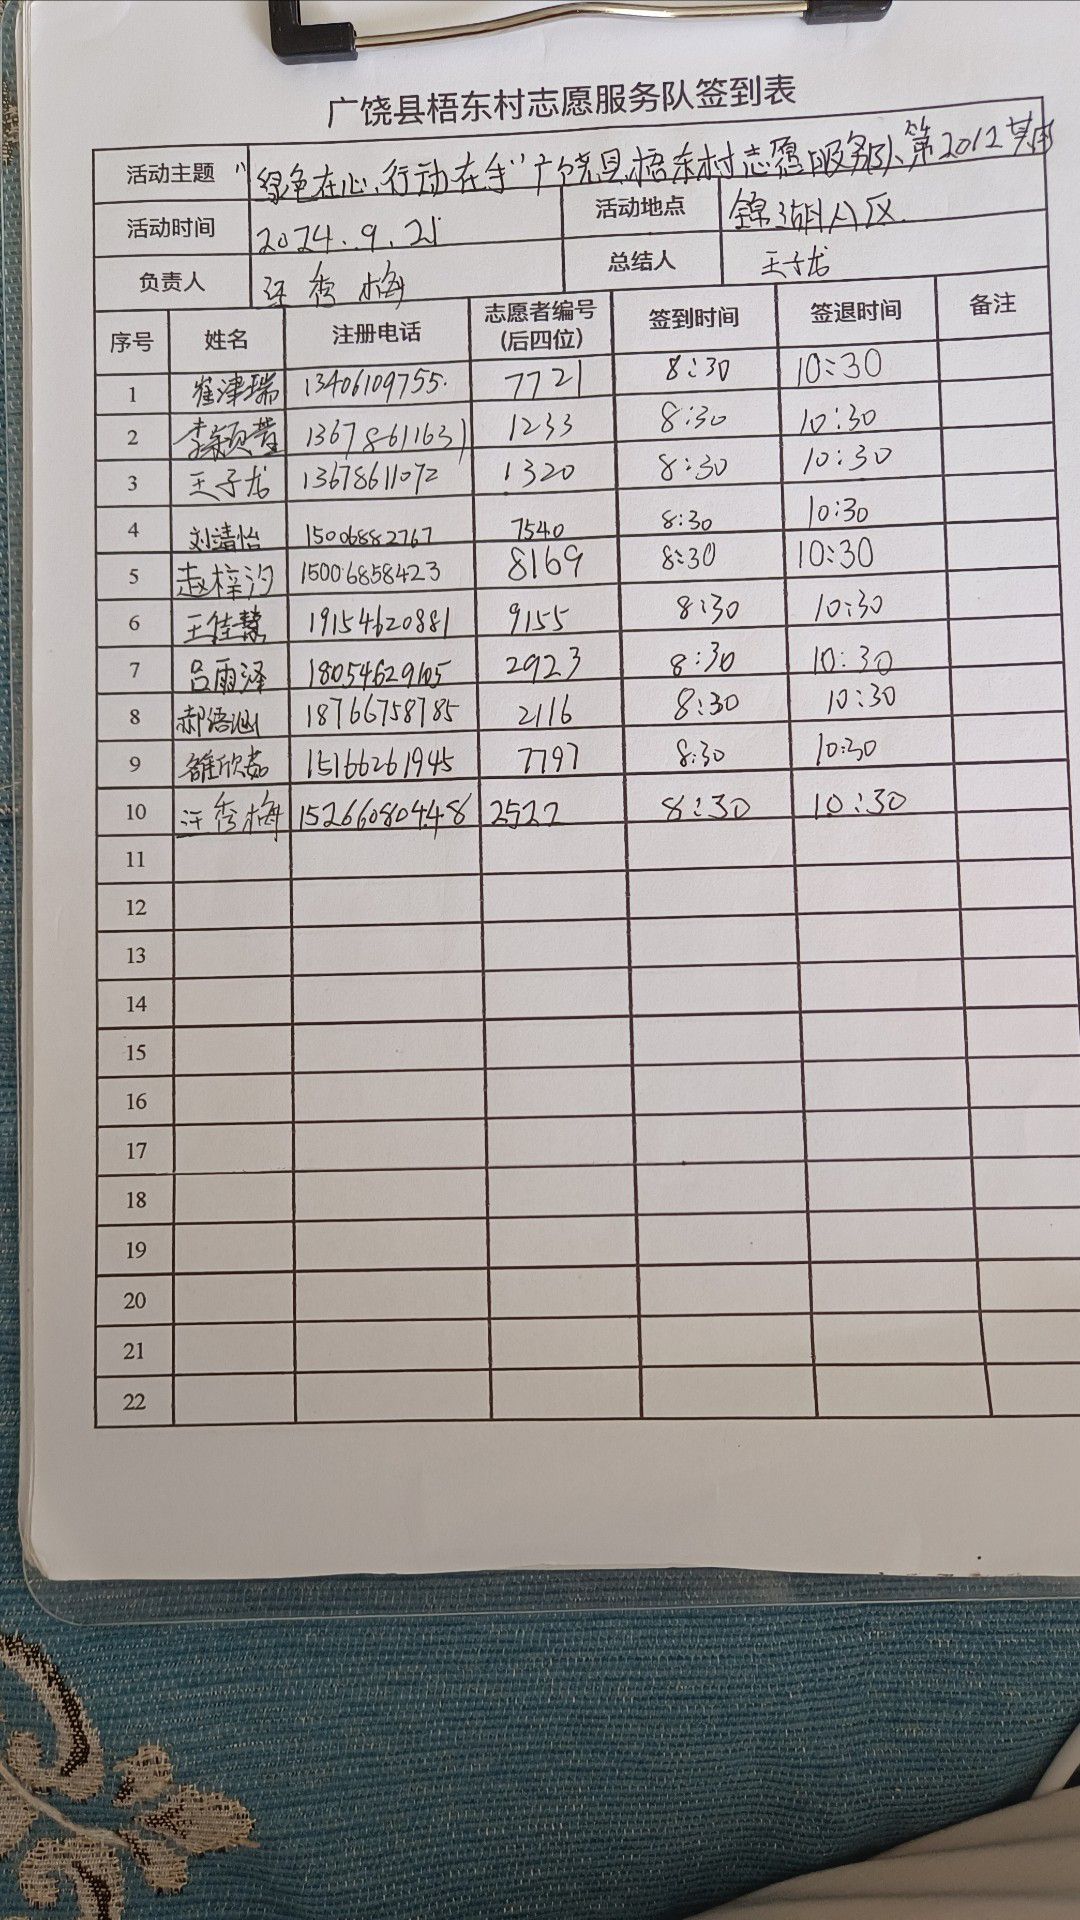 广饶县梧东村志愿服务队签到表
活动主题 "绿色在心,行动在手"广饶县梧东村志愿服务队第2012期
活动时间 2024.9.21 活动地点 锦湖公区
负责人 汪秀梅 总结人 王子龙
序号 姓名 注册电话 志愿者编号(后四位) 签到时间 签退时间 备注
1 崔津瑞 13406109755 7721 8:30 10:30
2 李颖萱 13678611631 1233 8:30 10:30
3 王子龙 13678611072 1320 8:30 10:30
4 刘靖怡 15006882767 7540 8:30 10:30
5 赵梓汐 15006858423 8169 8:30 10:30
6 王佳慧 19154620881 9155 8:30 10:30
7 吕雨泽 18054629105 2923 8:30 10:30
8 郝语涵 18766758785 2116 8:30 10:30
9 雒欣茹 15166261945 7797 8:30 10:30
10 汪秀梅 15266080448 2522 8:30 10:30
11
12
13
14
15
16
17
18
19
20
21
22